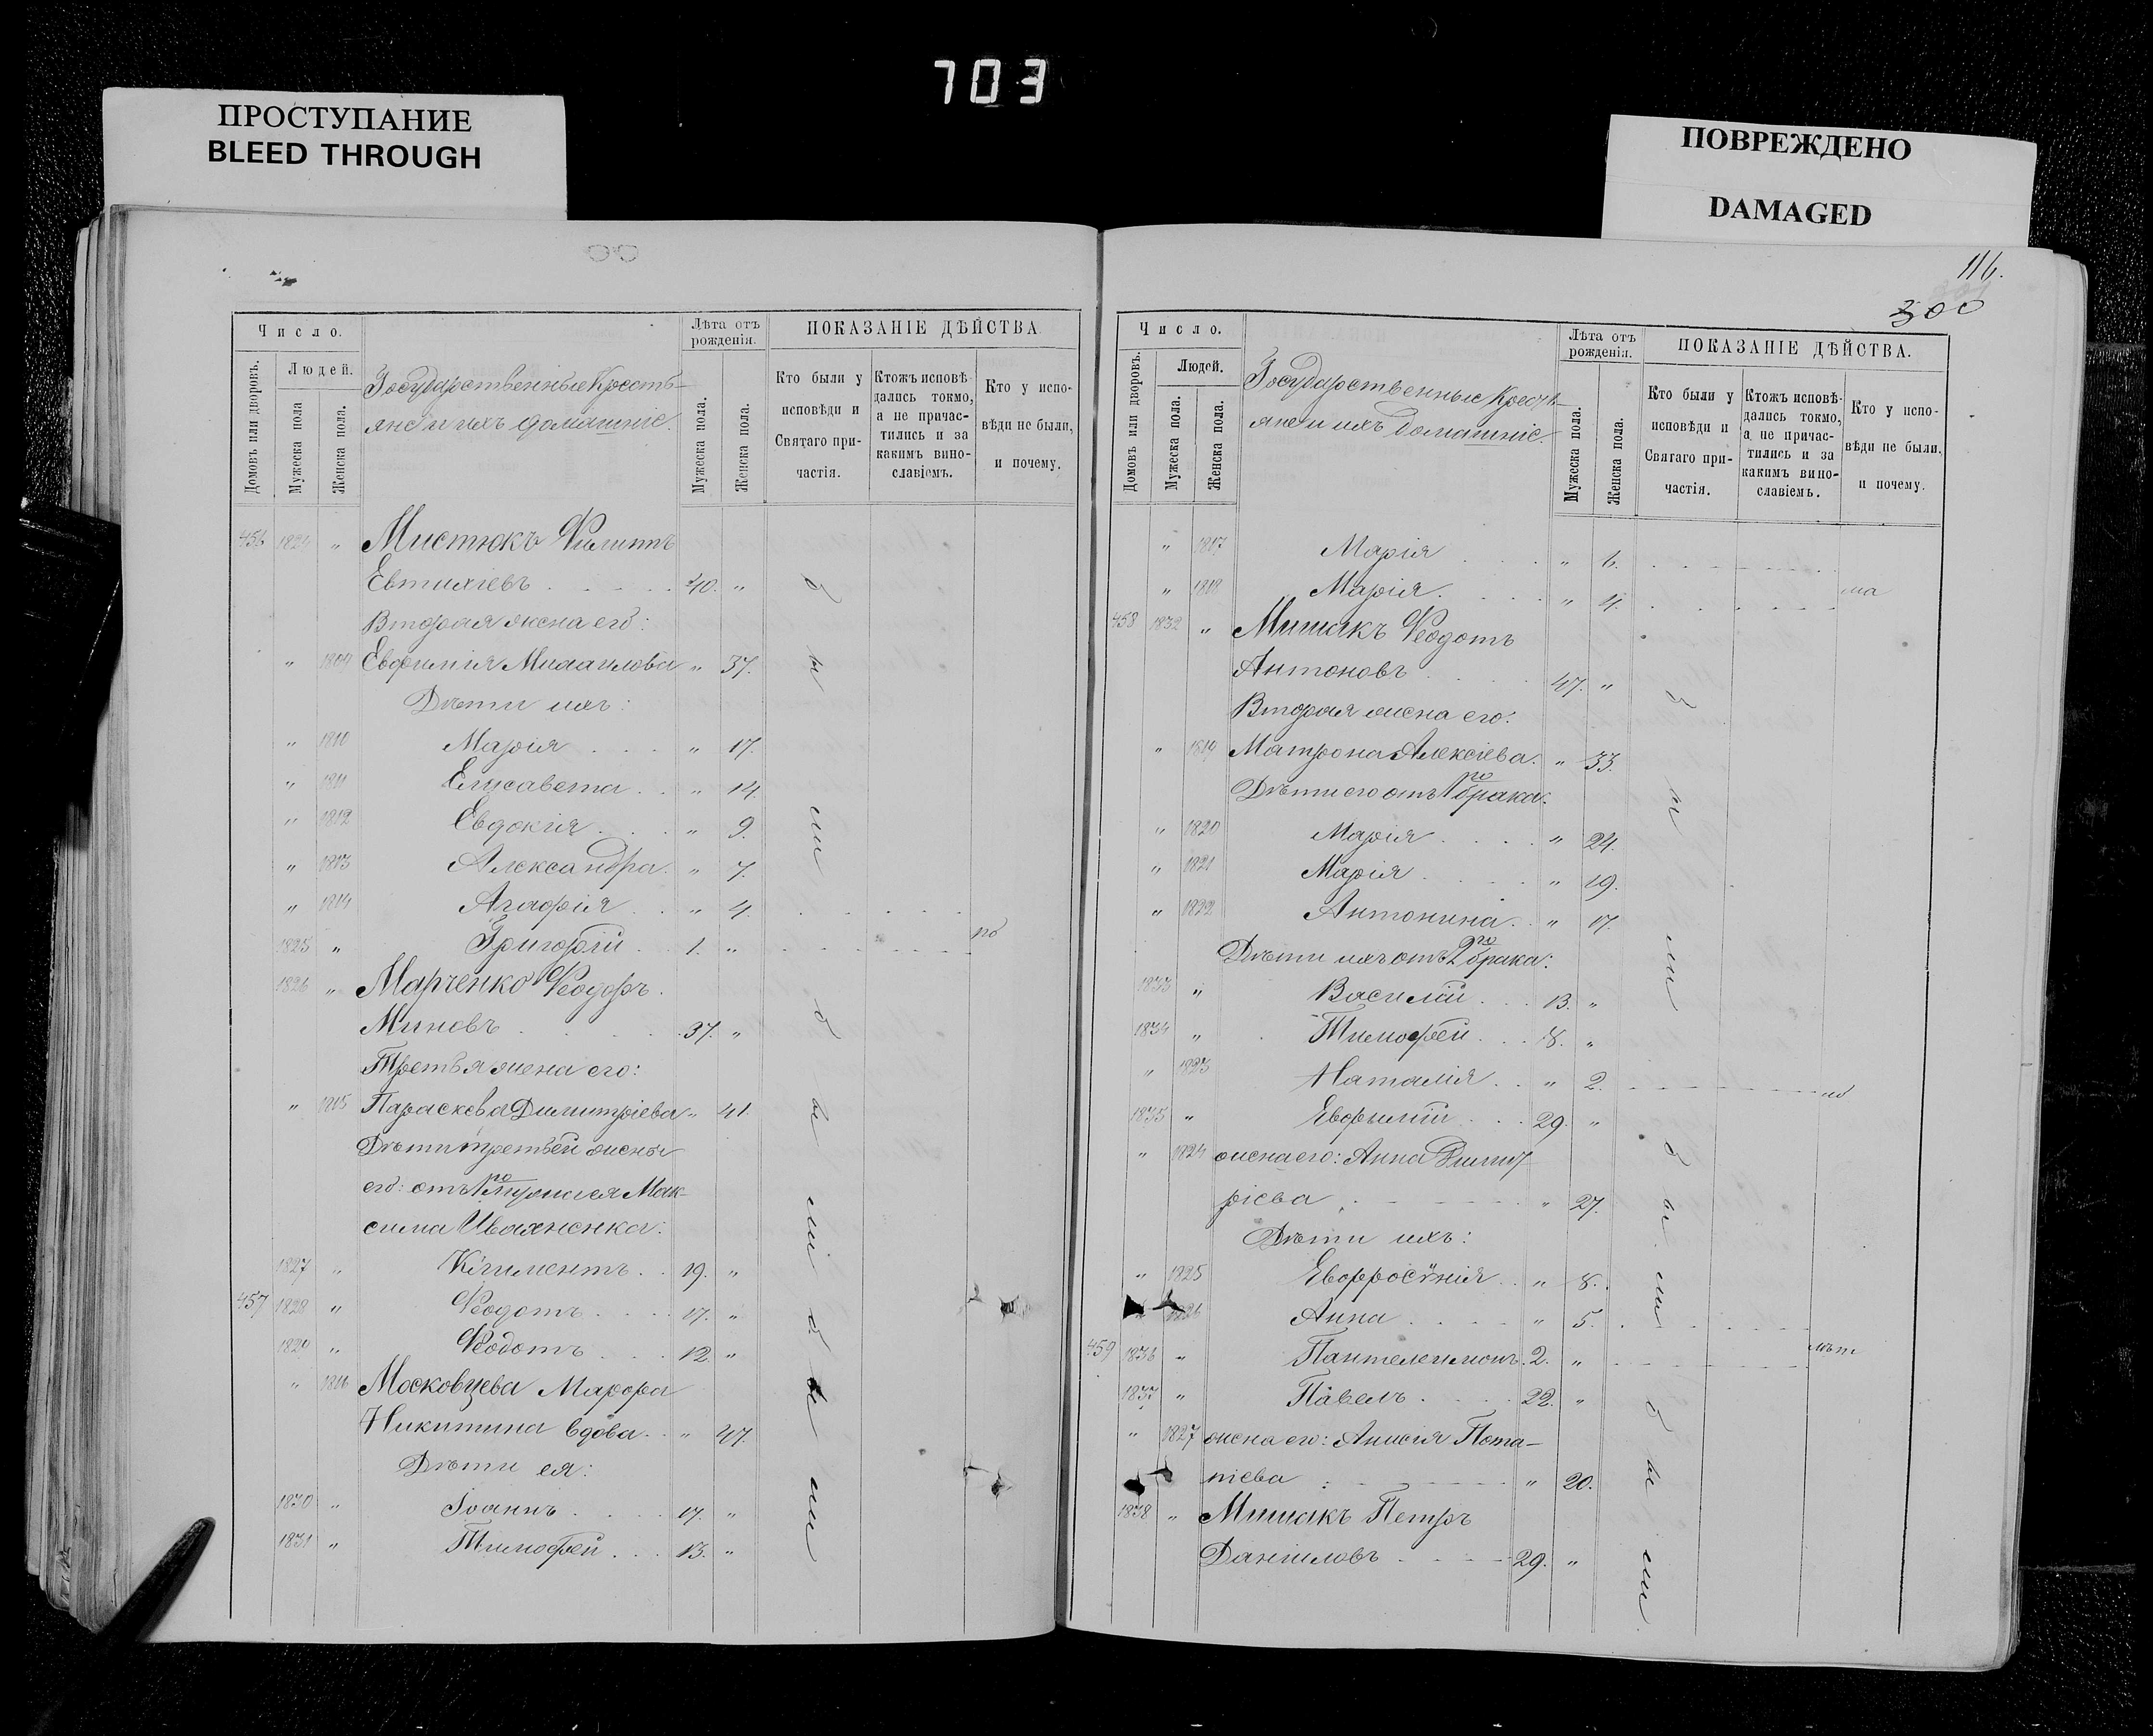 703
ПРОСТУПАНИЕ
BLEED THROUGH
ПОВРЕЖДЕНО
DAMAGED
Число.
Домовъ или дворовъ.
Людей.
Мужеска пола
Женска пола.
Государственные Кресть-
яне и ихъ домашніе.
Лѣта отъ рожденія.
Мужеска пола.
Женска пола.
ПОКАЗАНІЕ ДѢЙСТВА
Кто были у исповѣди и Святаго при- частія.
Ктожъ исповѣ- дались токмо, а не причас- тились и за какимъ вино- славіемъ.
Кто у испо- вѣди не были, и почему.
456 1824 „ Мистюкъ Филиппъ
Евтихіевъ 40. „
Вторая жена его:
„ 1809 Евфимія Михаилова „ 37.
Дѣти ихъ:
„ 1810 Марія „ 17.
„ 1811 Елисавета „ 14.
„ 1812 Евдокія „ 9.
„ 1813 Александра „ 7.
„ 1814 Агафія „ 4.
1825 „ Григорій 1. „
1826 „ Марченко Ѳеодоръ
Миновъ 37. „
Третья жена его:
„ 1815 Параскева Димитріева „ 41.
Дѣти третьей жены
его: отъ 1го мужа ея Мак-
сима Иваненка:
1827 „ Климентъ 19. „
457 1828 „ Ѳеодотъ 17. „
1829 „ Ѳеодотъ 12. „
„ 1816 Московцева Марфа
Никитина вдова „ 47.
Дѣти ея:
1830 „ Іоаннъ 17. „
1831 „ Тимофей 13. „
были
были
были
116.
300
Число.
Домовъ или дворовъ.
Людей.
Мужеска пола.
Женска пола.
Государственные Кресть-
яне и ихъ домашніе.
Лѣта отъ рожденія.
Мужеска пола.
Женска пола.
ПОКАЗАНІЕ ДѢЙСТВА.
Кто были у исповѣди и Святаго при- частія.
Ктожъ исповѣ- дались токмо, а не причас- тились и за какимъ вино- славіемъ.
Кто у испо- вѣди не были, и почему.
„ 1817 Марія „ 6.
„ 1818 Марія „ 4.
458 1832 „ Мишакъ Ѳеодотъ
Антоновъ 47. „
Вторая жена его:
„ 1819 Матрона Алексіева „ 33.
Дѣти его отъ 1го брака:
„ 1820 Марія „ 24.
„ 1821 Марія „ 19.
„ 1822 Антонина „ 17.
Дѣти ихъ отъ 2го брака:
1833 „ Василій 13. „
1834 „ Тимофей 8. „
„ 1823 Наталія „ 2.
1835 „ Евфимій 29. „
„ 1824 жена его: Анна Димит-
ріева „ 27.
Дѣти ихъ:
„ 1825 Евфросинія „ 8.
1826 Анна „ 5.
459 1836 „ Пантелеимонъ 2. „
1837 „ Павелъ 22. „
„ 1827 жена его: Анисія Пота-
піева „ 20.
1838 „ Мишакъ Петръ
Даніиловъ 29. „
были
были
были